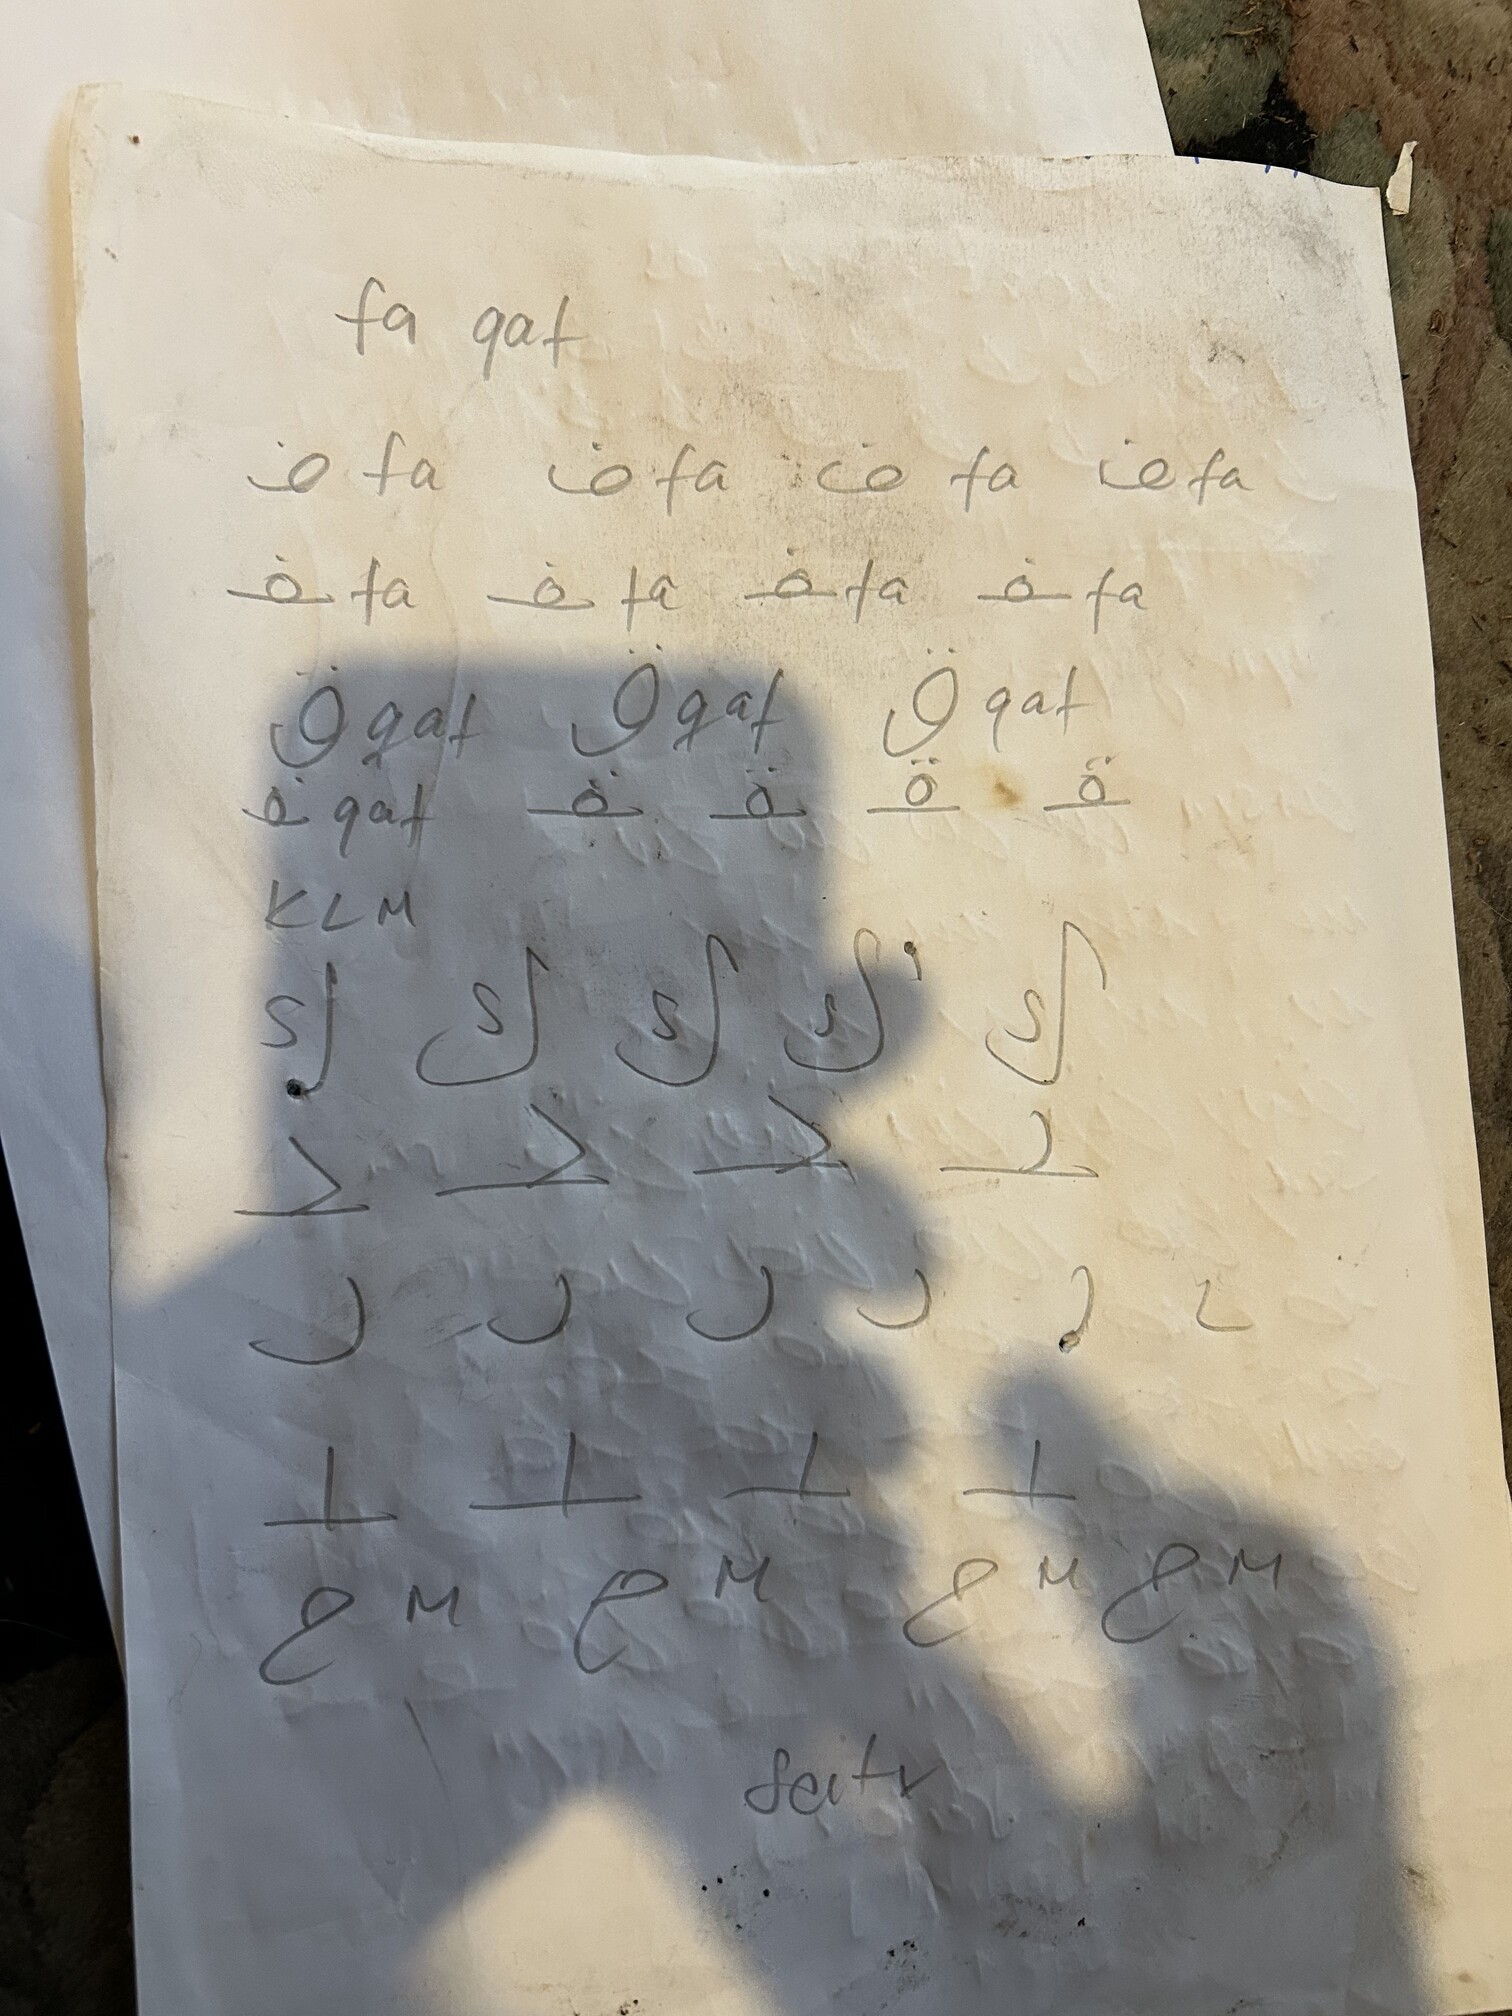 fa qaf
ف fa ف fa ف fa ف fa
ـفـ fa ـفـ fa ـفـ fa ـفـ fa
ق qaf ق qaf ق qaf
ـفـ qaf ـقـ ـقـ ـقـ ـقـ
KLM
ك ك ك ك ك
ـكـ ـكـ ـكـ ـكـ
ل ل ل ل ل ل
ـلـ ـلـ ـلـ ـلـ
م M م M م M م M